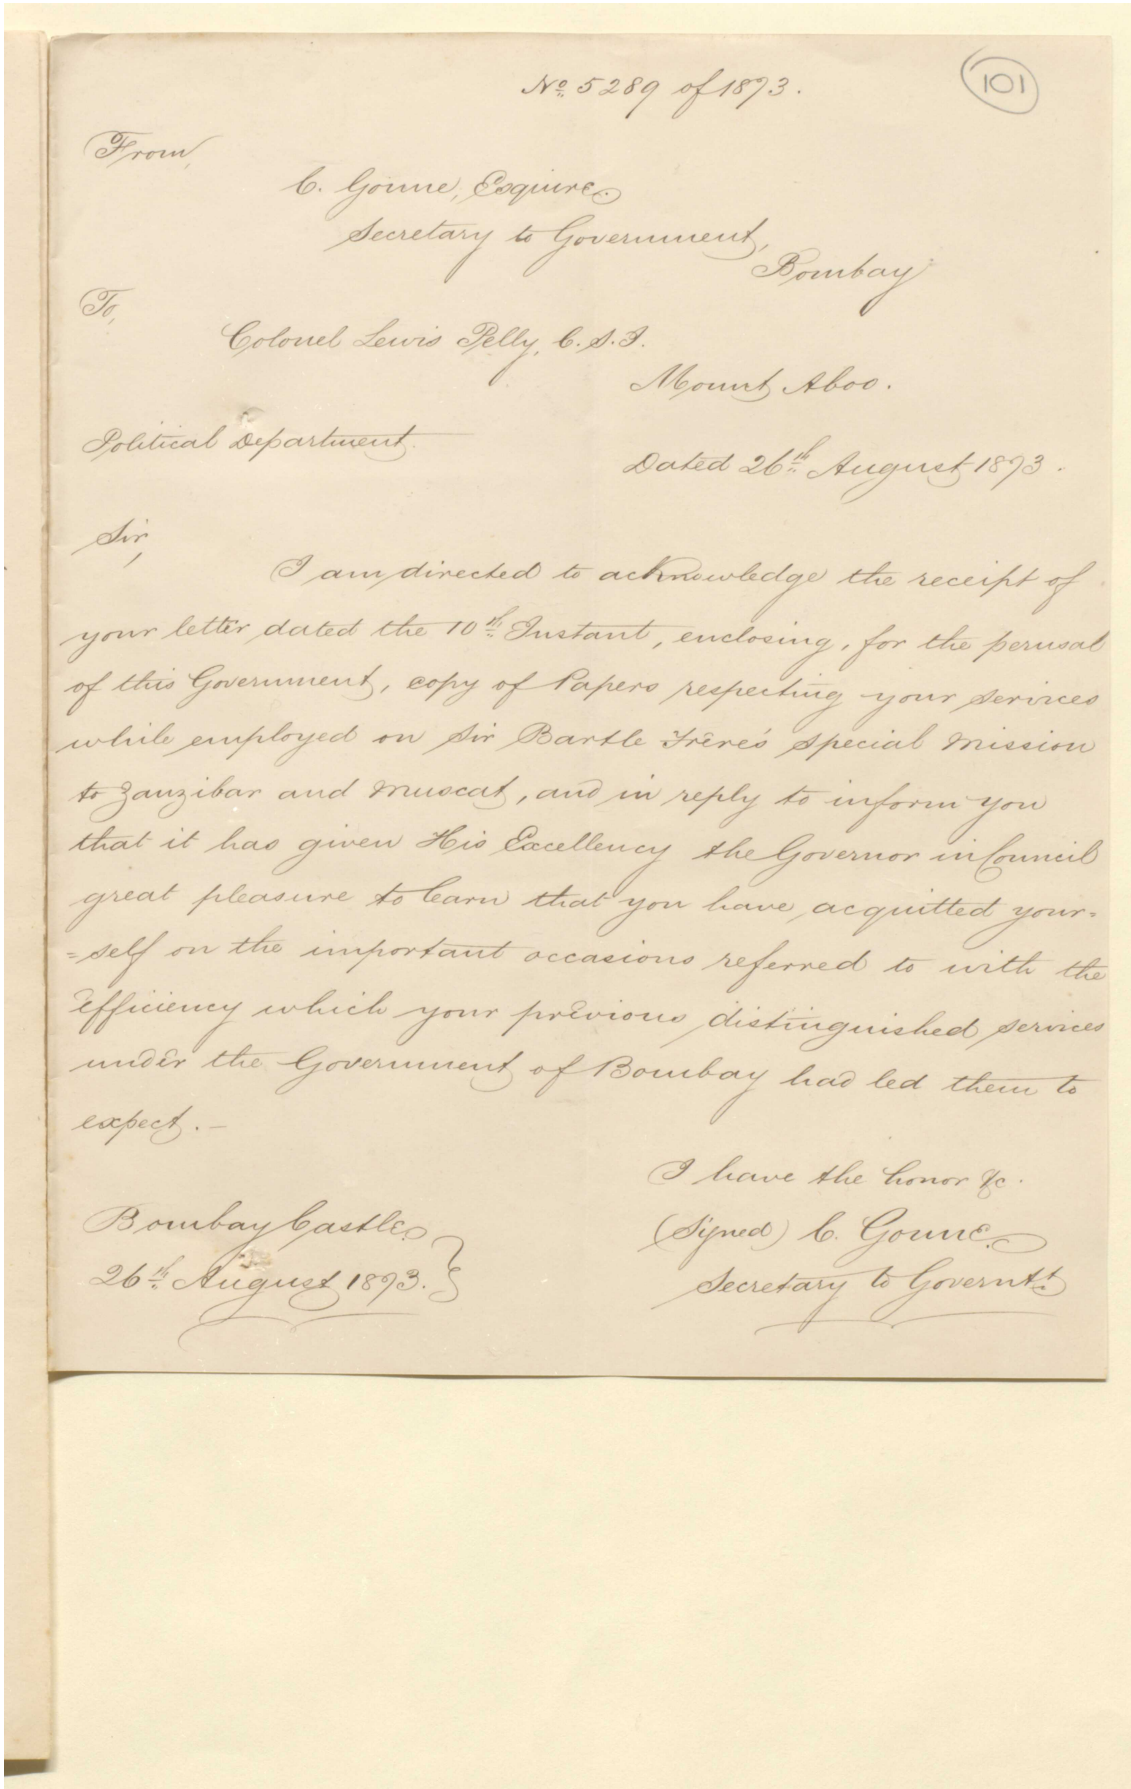 No. 5289 of 1873.
101
From,
C. Gonne, Esquire.
Secretary to Government,
Bombay
To,
Colonel Lewis Pelly, C.S.I.
Mount Aboo.
Political Department.
Dated 26th August 1873.
Sir,
I am directed to acknowledge the receipt of
your letter dated the 10th Instant, enclosing, for the perusal
of this Government, copy of Papers respecting your services
while employed on Sir Bartle Frere's special Mission
to Zanzibar and Muscat, and in reply to inform you
that it has given His Excellency the Governor in Council
great pleasure to learn that you have acquitted your=
=self on the important occasions referred to with the
efficiency which your previous distinguished services
under the Government of Bombay had led them to
expect. —
I have the honor &c.
Bombay Castle.
(Signed) C. Gonne.
26th August 1873.
Secretary to Governt.